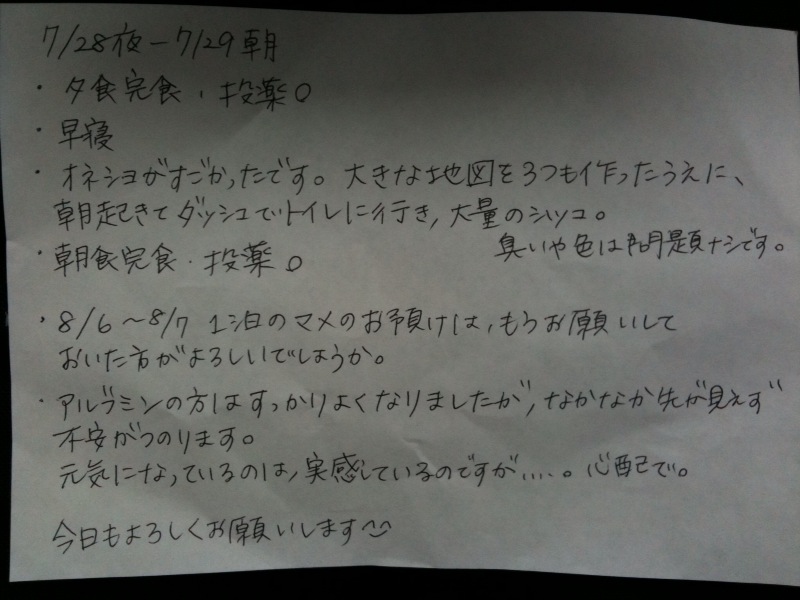 7/28夜－7/29朝
・夕食完食、投薬○
・早寝
・オネショがすごかったです。大きな地図を3つも作ったうえに、
朝起きてダッシュでトイレに行き、大量のシッコ。
臭いや色は問題ナシです。
・朝食完食・投薬○
・8/6～8/7 1泊のマメのお預けは、もうお願いして
おいた方がよろしいでしょうか。
・アルブミンの方はすっかりよくなりましたが、なかなか先が見えず
不安がつのります。
元気になっているのは、実感しているのですが‥‥。心配で。
今日もよろしくお願いします